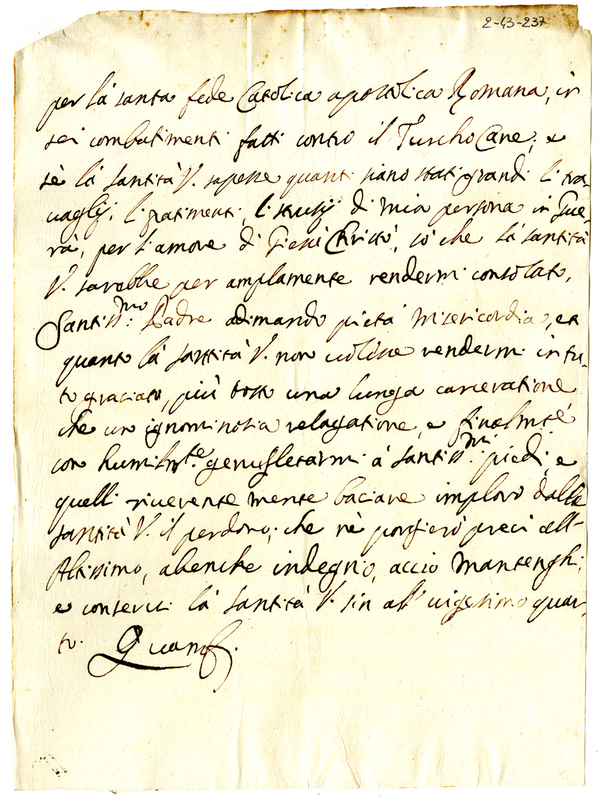 2-43-237
per la santa fede Catolica apostolica Romana, in
sei combatimenti fatti contro il Turcho Cane, e
sè la Santità V. sapesse quanti siano stati grandi li tra-
uaglij, li patimenti, li strusij di mia persona in Gue-
ra, per l'amore di Giesù Christo, sò che la santità
V. sarebbe per amplamente rendermi consolato,
Santiss.mo Padre adimando pietà Misericordia, et
quanto la santità V. non uolesse rendermi in tu-
to graciato, più tosto una lunga carceratione
che un ignominosia relagatione, e finalmte
con humilmte genufletarmi a santiss.mi piedi, e
quelli riuerentemente baciare imploro dalla
santità V. il perdono, che nè porgierò preci all'
Altissimo, abenche indegnio, acciò Mantenghi,
e conserui la santità V. sin al' uigesimo quar-
to. Quam